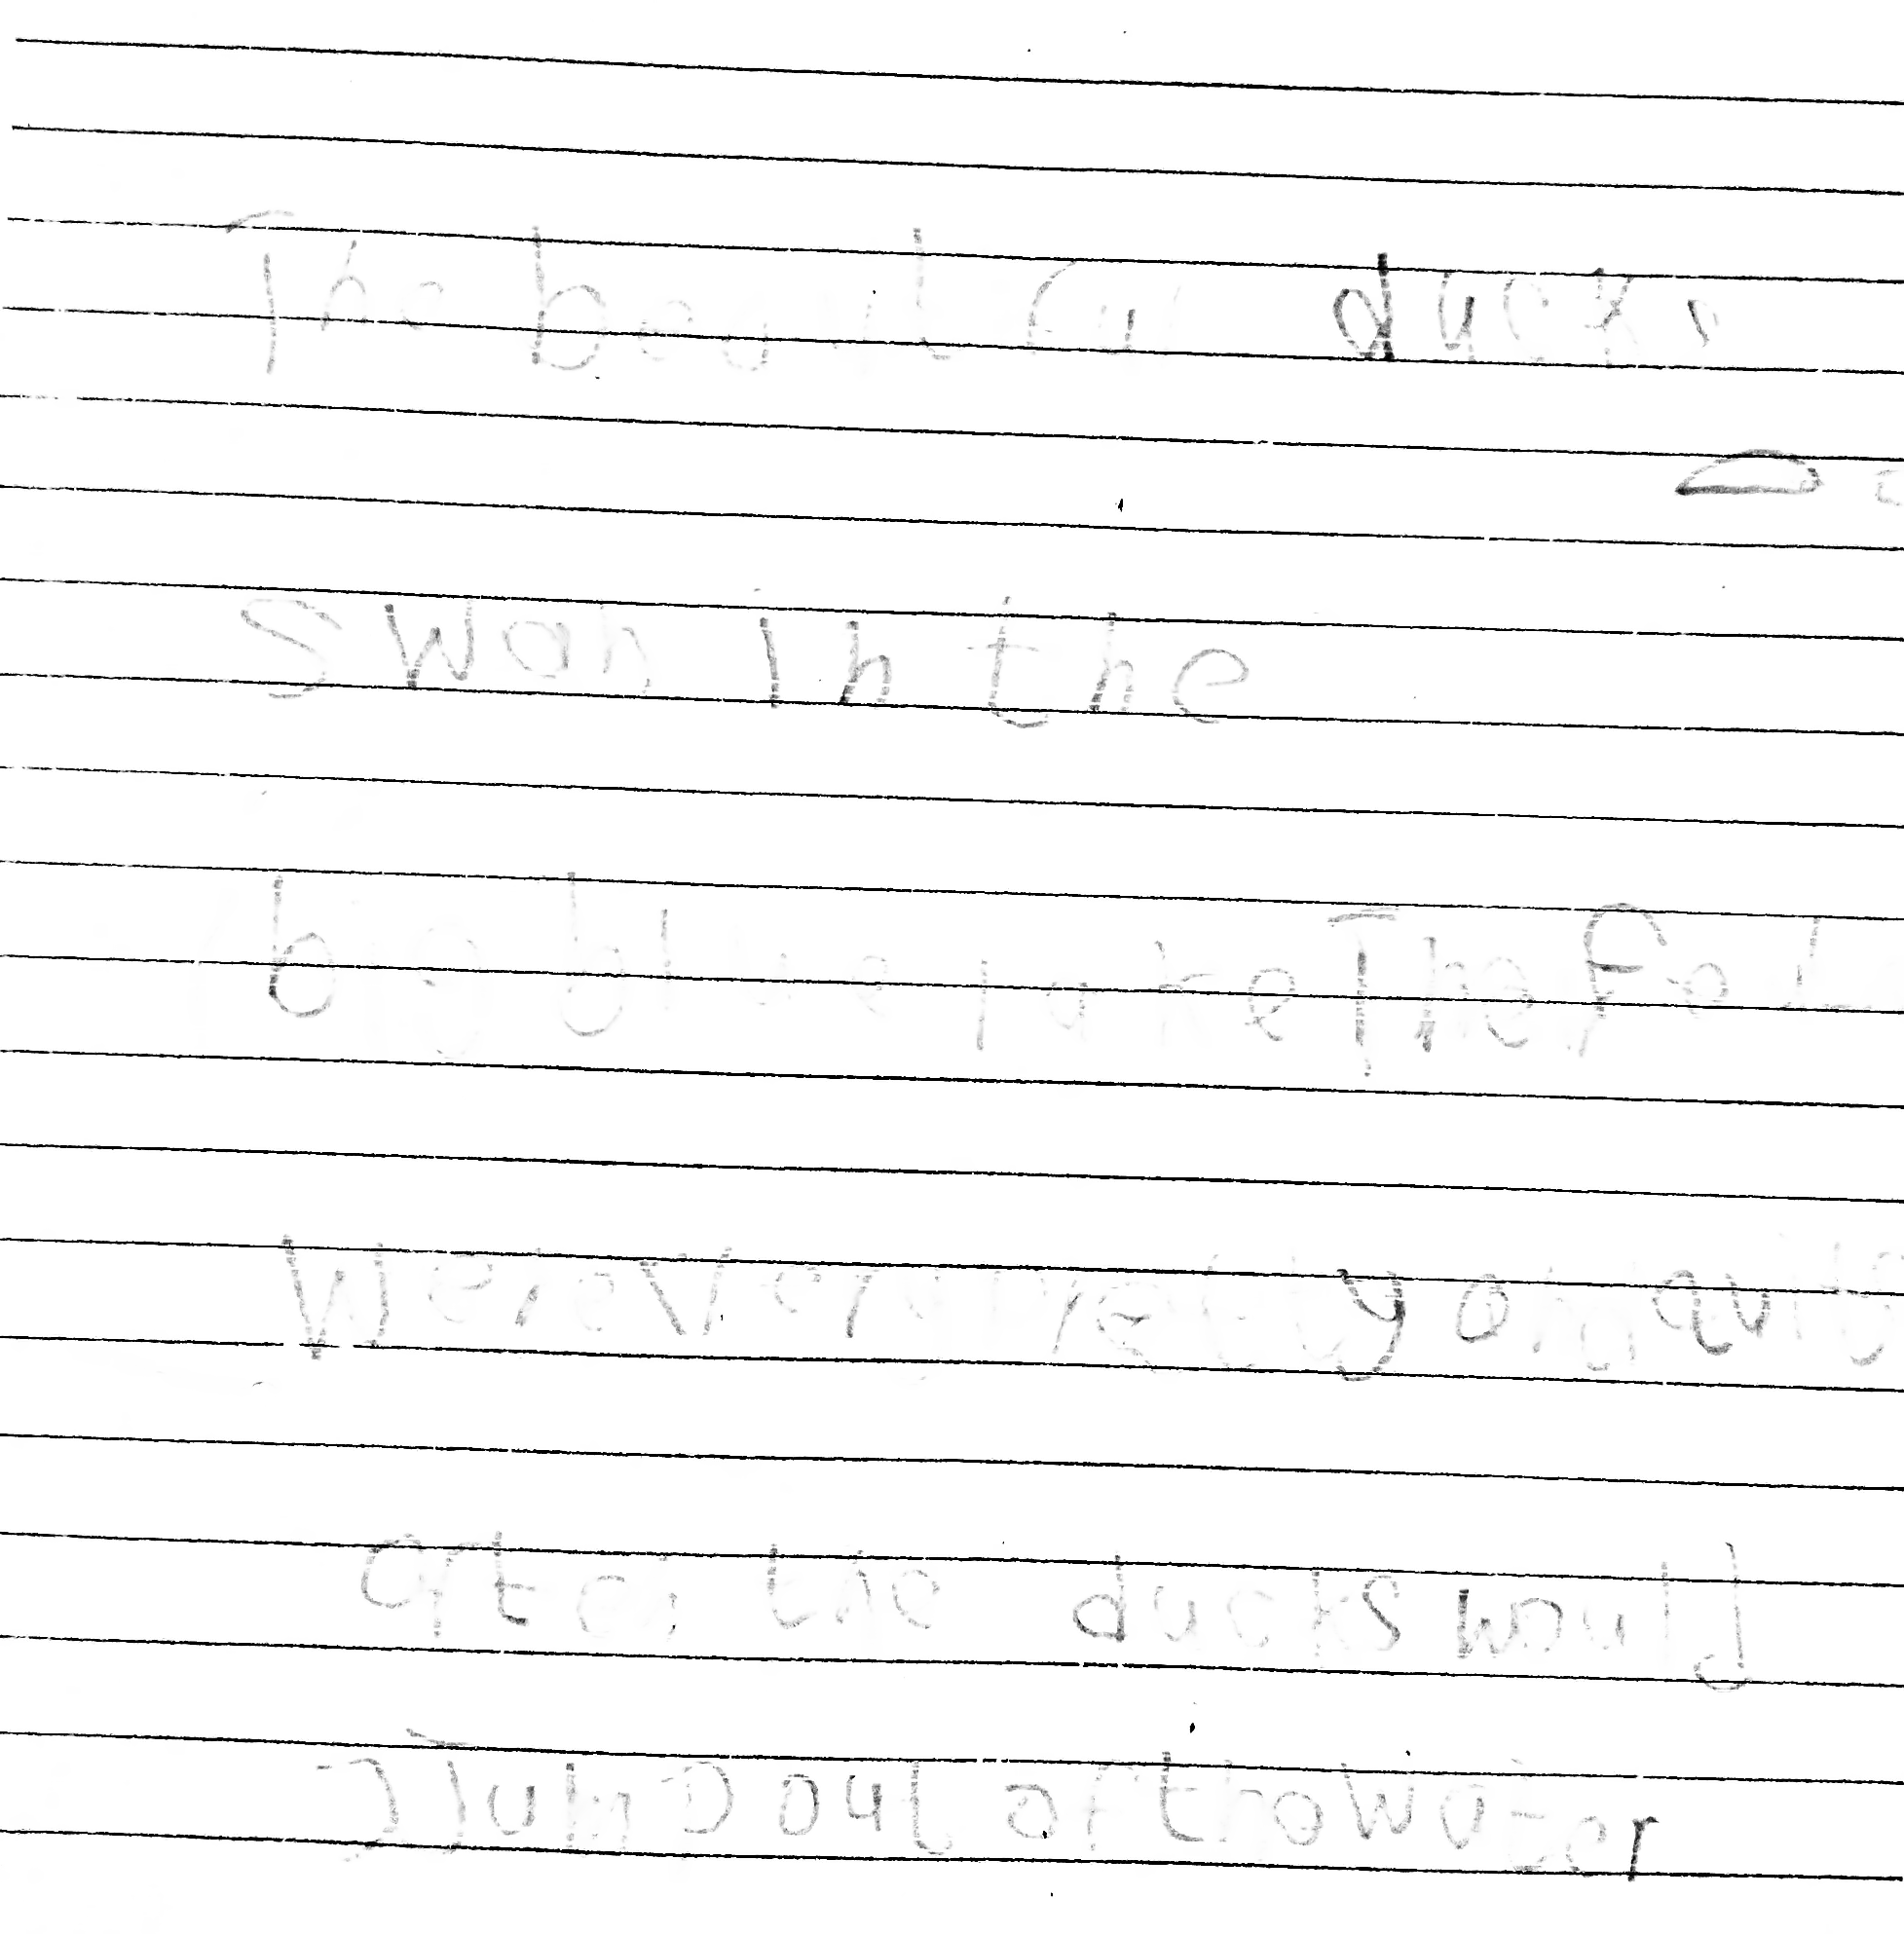 The beautiful ducks
swan in the
big blue lake The
were very pretty and
after the ducks would
Jump out of the water